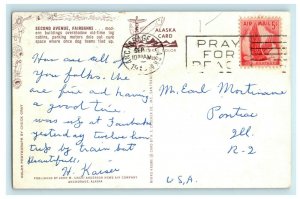 SECOND AVENUE, FAIRBANKS . . . mod-
ern buildings overshadow old-time log
cabins, parking meters dole out curb
space where once dog teams tied up.
ALASKA
CARD
COLOR
ANCHORAGE
SEP
10 AM
PRAY
FOR
PEACE
AIR MAIL
How are all of
you folks. We
are fine and having
a good time
was at Fairbanks
yesterday twelve hour
trip by train but
beautiful.
H. Kaiser
Mr. Earl Mortimore
Pontiac
Ill.
R-2
U.S.A.
COLOR PHOTOGRAPH BY CHUCK GRAY
ANCHORAGE, ALASKA